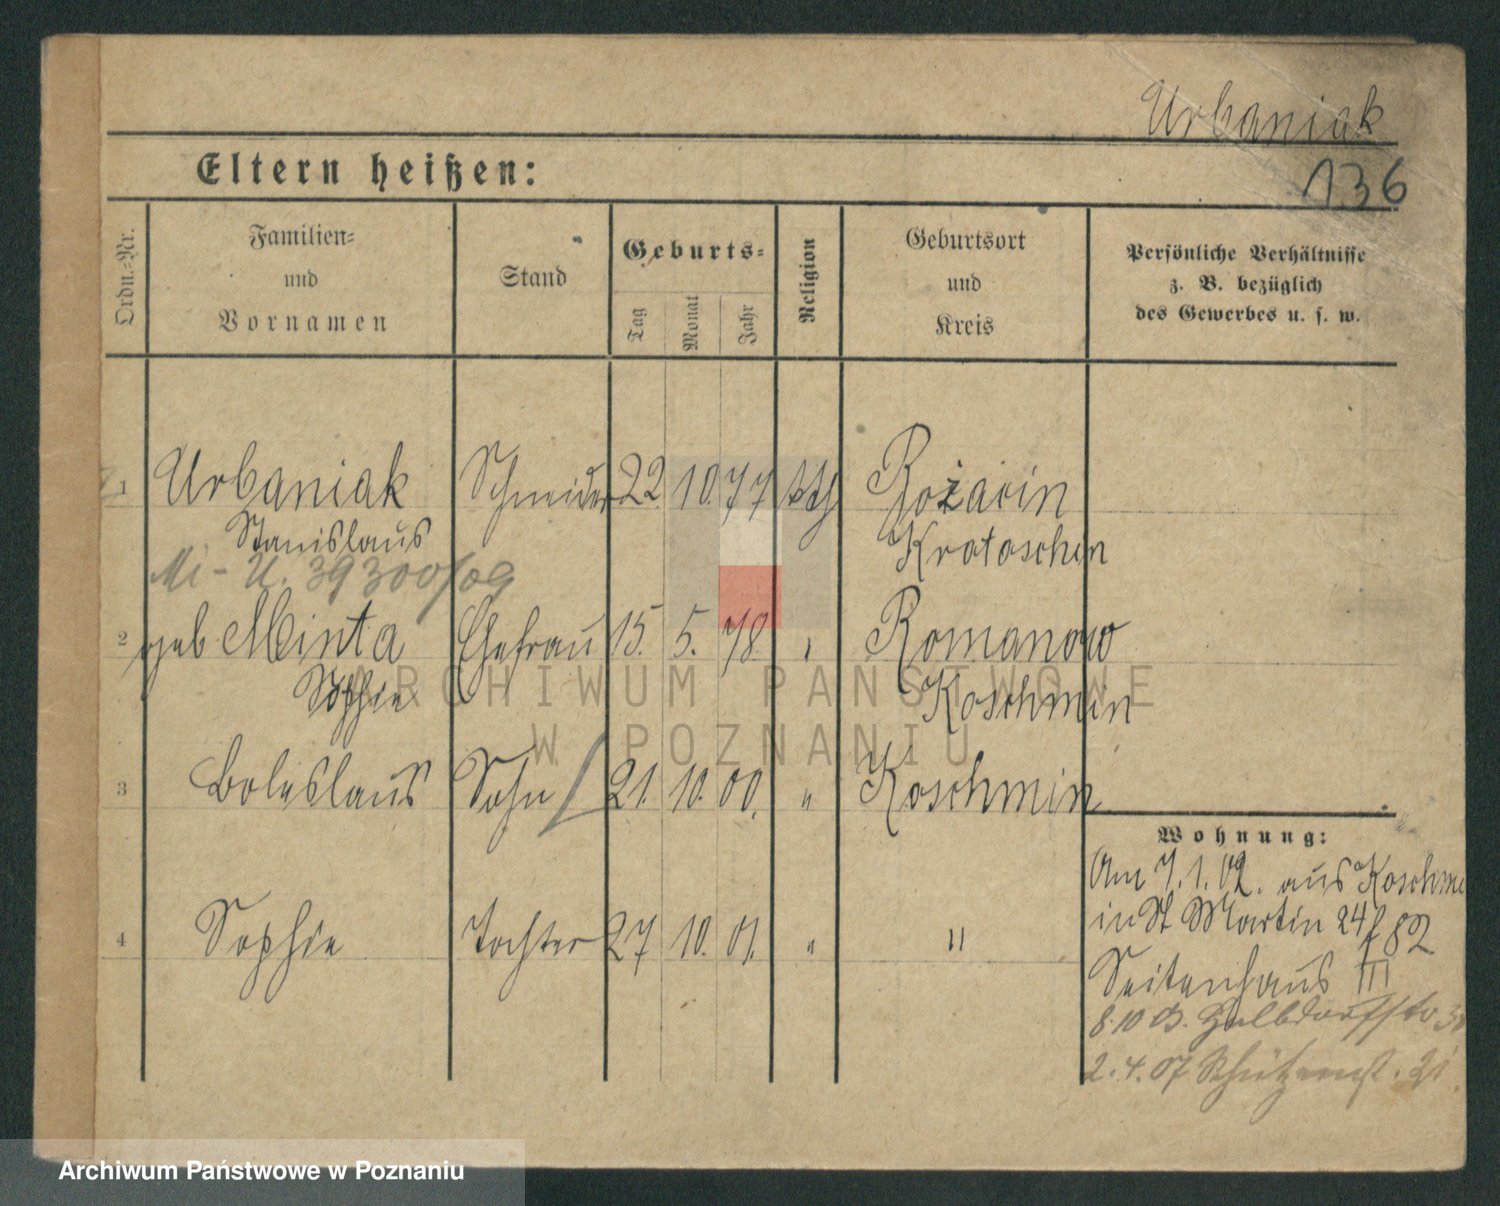 Urbaniak
136
Eltern heißen:
Ordn.=Nr.
Familien=
und
Vornamen
Stand
Geburts=
Tag
Monat
Jahr
Religion
Geburtsort
und
Kreis
Persönliche Verhältnisse
z. B. bezüglich
des Gewerbes u. s. w.
1 Urbaniak Schneider 22. 10. 77 kth Rożarin
Stanislaus Krotoschin
39300/09
2 geb Minta Ehefrau 15. 5. 78. " Romanow
Sophie Koschmin
3 Boleslaus Sohn 21. 10. 00. " Koschmin
4 Sophie Tochter 27 10. 01. " "
Wohnung:
Am 7.1.02. aus Koschmin
in St Martin 24
Seitenhaus III
8.10 03. Halbdorfstr
2.4.07 Schützenst. 21
ARCHIWUM PAŃSTWOWE
W POZNANIU
Archiwum Państwowe w Poznaniu